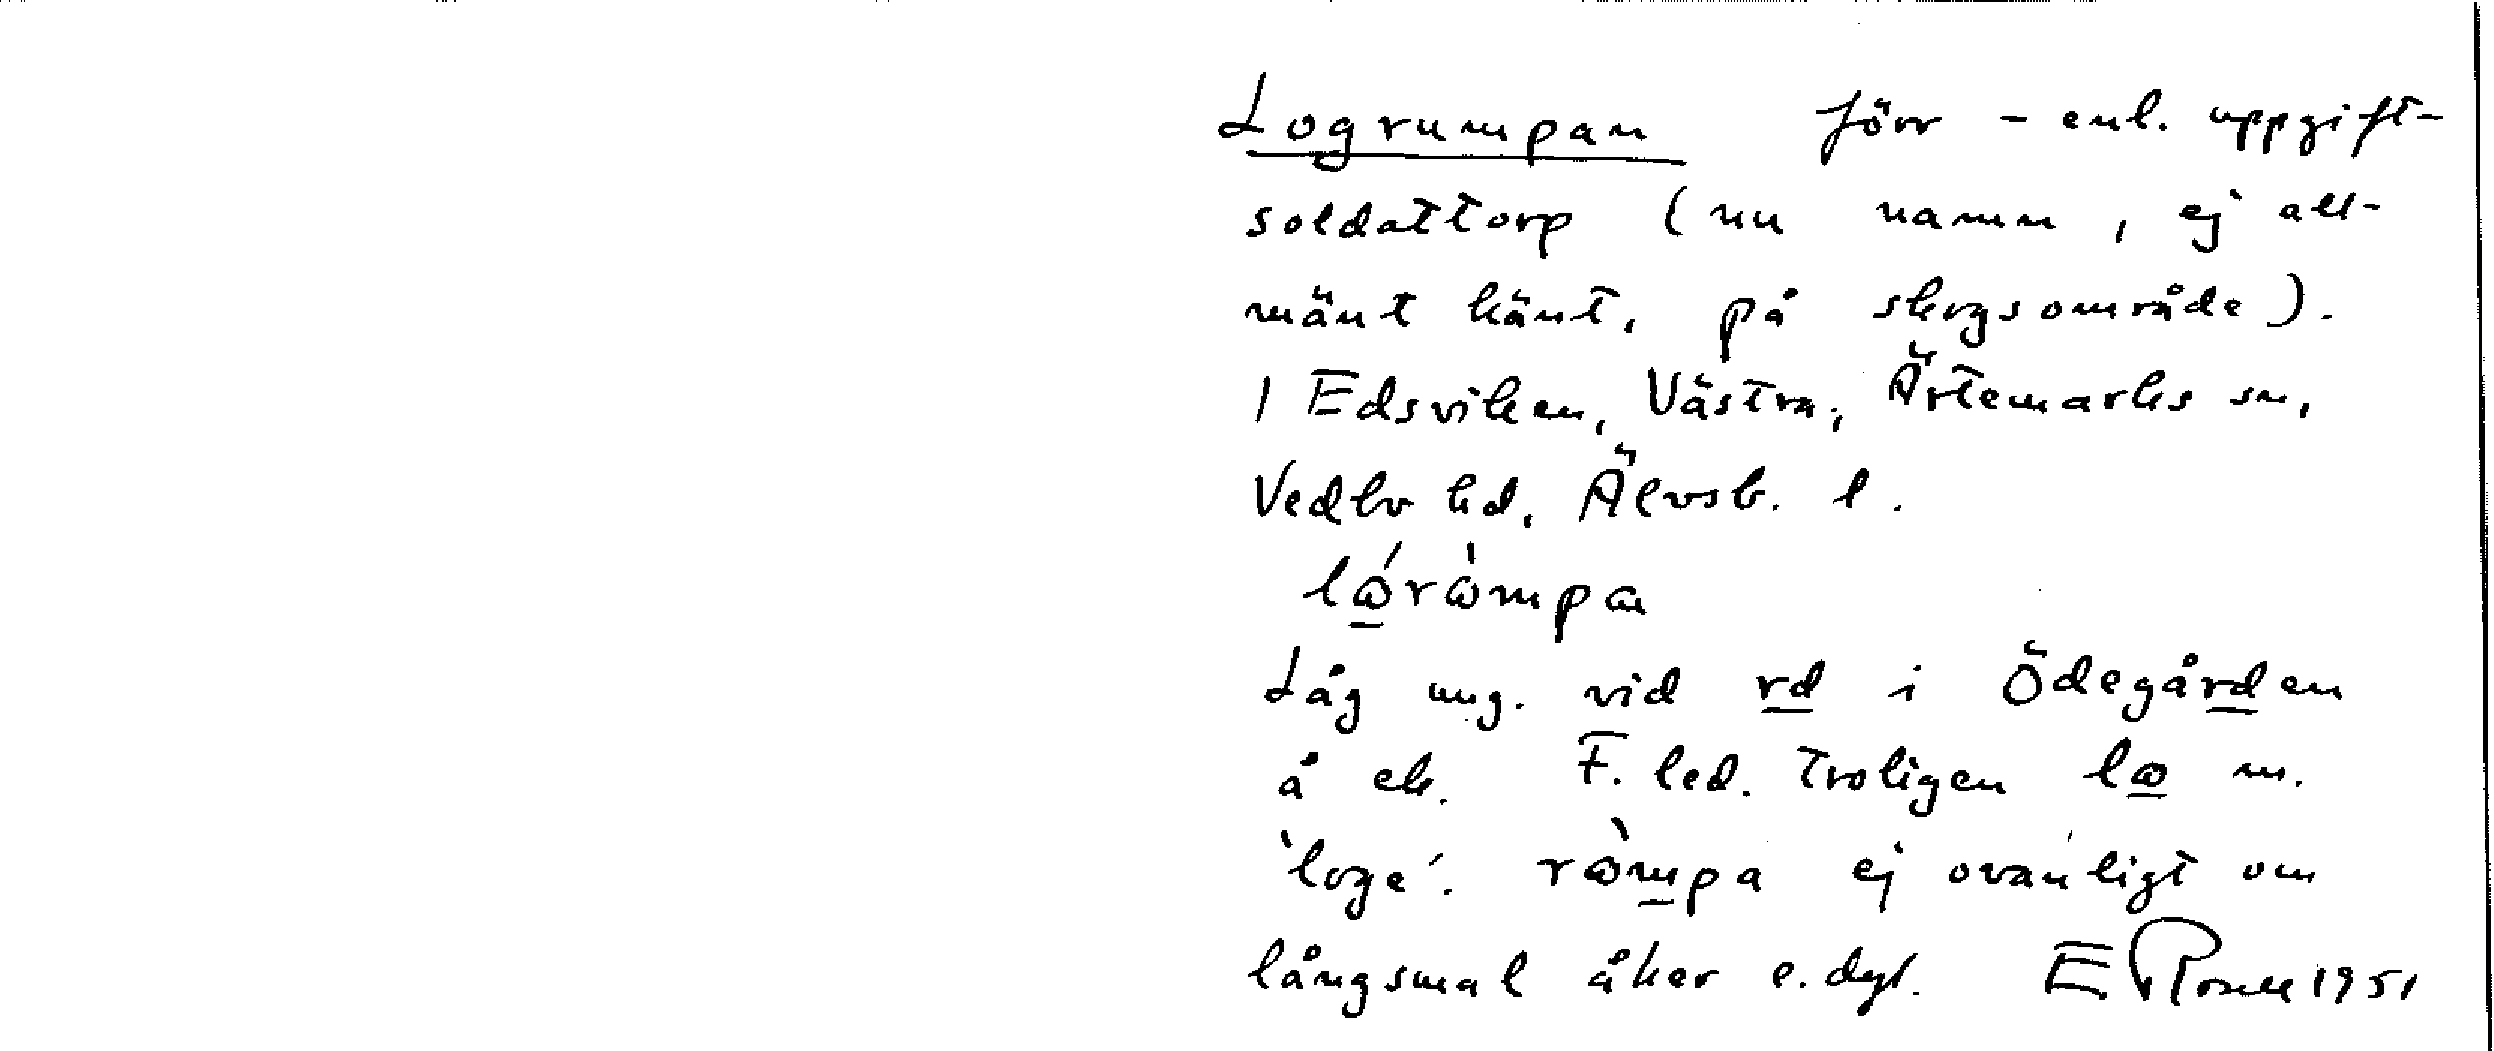 Logrumpan förr - enl. uppgift -
soldattorp (nu namn, ej all-
mänt känt, på skogsområde).
I Edsviken, Västra, Ärtemarks sn,
Vedbo hd, Älvsb. l.
lɷ́rɷ̀mpa
Låg ung. vid rd i Ödegården
å ek. F. led. troligen lɷ m.
'loge'. rɷ̀mpa ej ovanligt om
långsmal åker e. dyl. E 1951